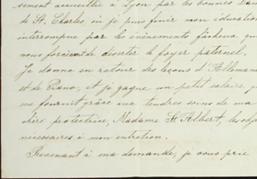 sement accueillie à Lyon par les bonnes Dames
de St. Charles où je puis finir mon éducation
interrompue par les événements fâcheux qui
nous forcèrent de déserter le foyer paternel.
Je donne en retour des leçons d'Allemand
et de Piano, et je gagne un petit salaire, q
me fournit grâce aux tendres soins de ma
chère protectrice, Madame St. Albert, les obj
nécessaires à mon entretien.
Revenant à ma demande, je vous prie